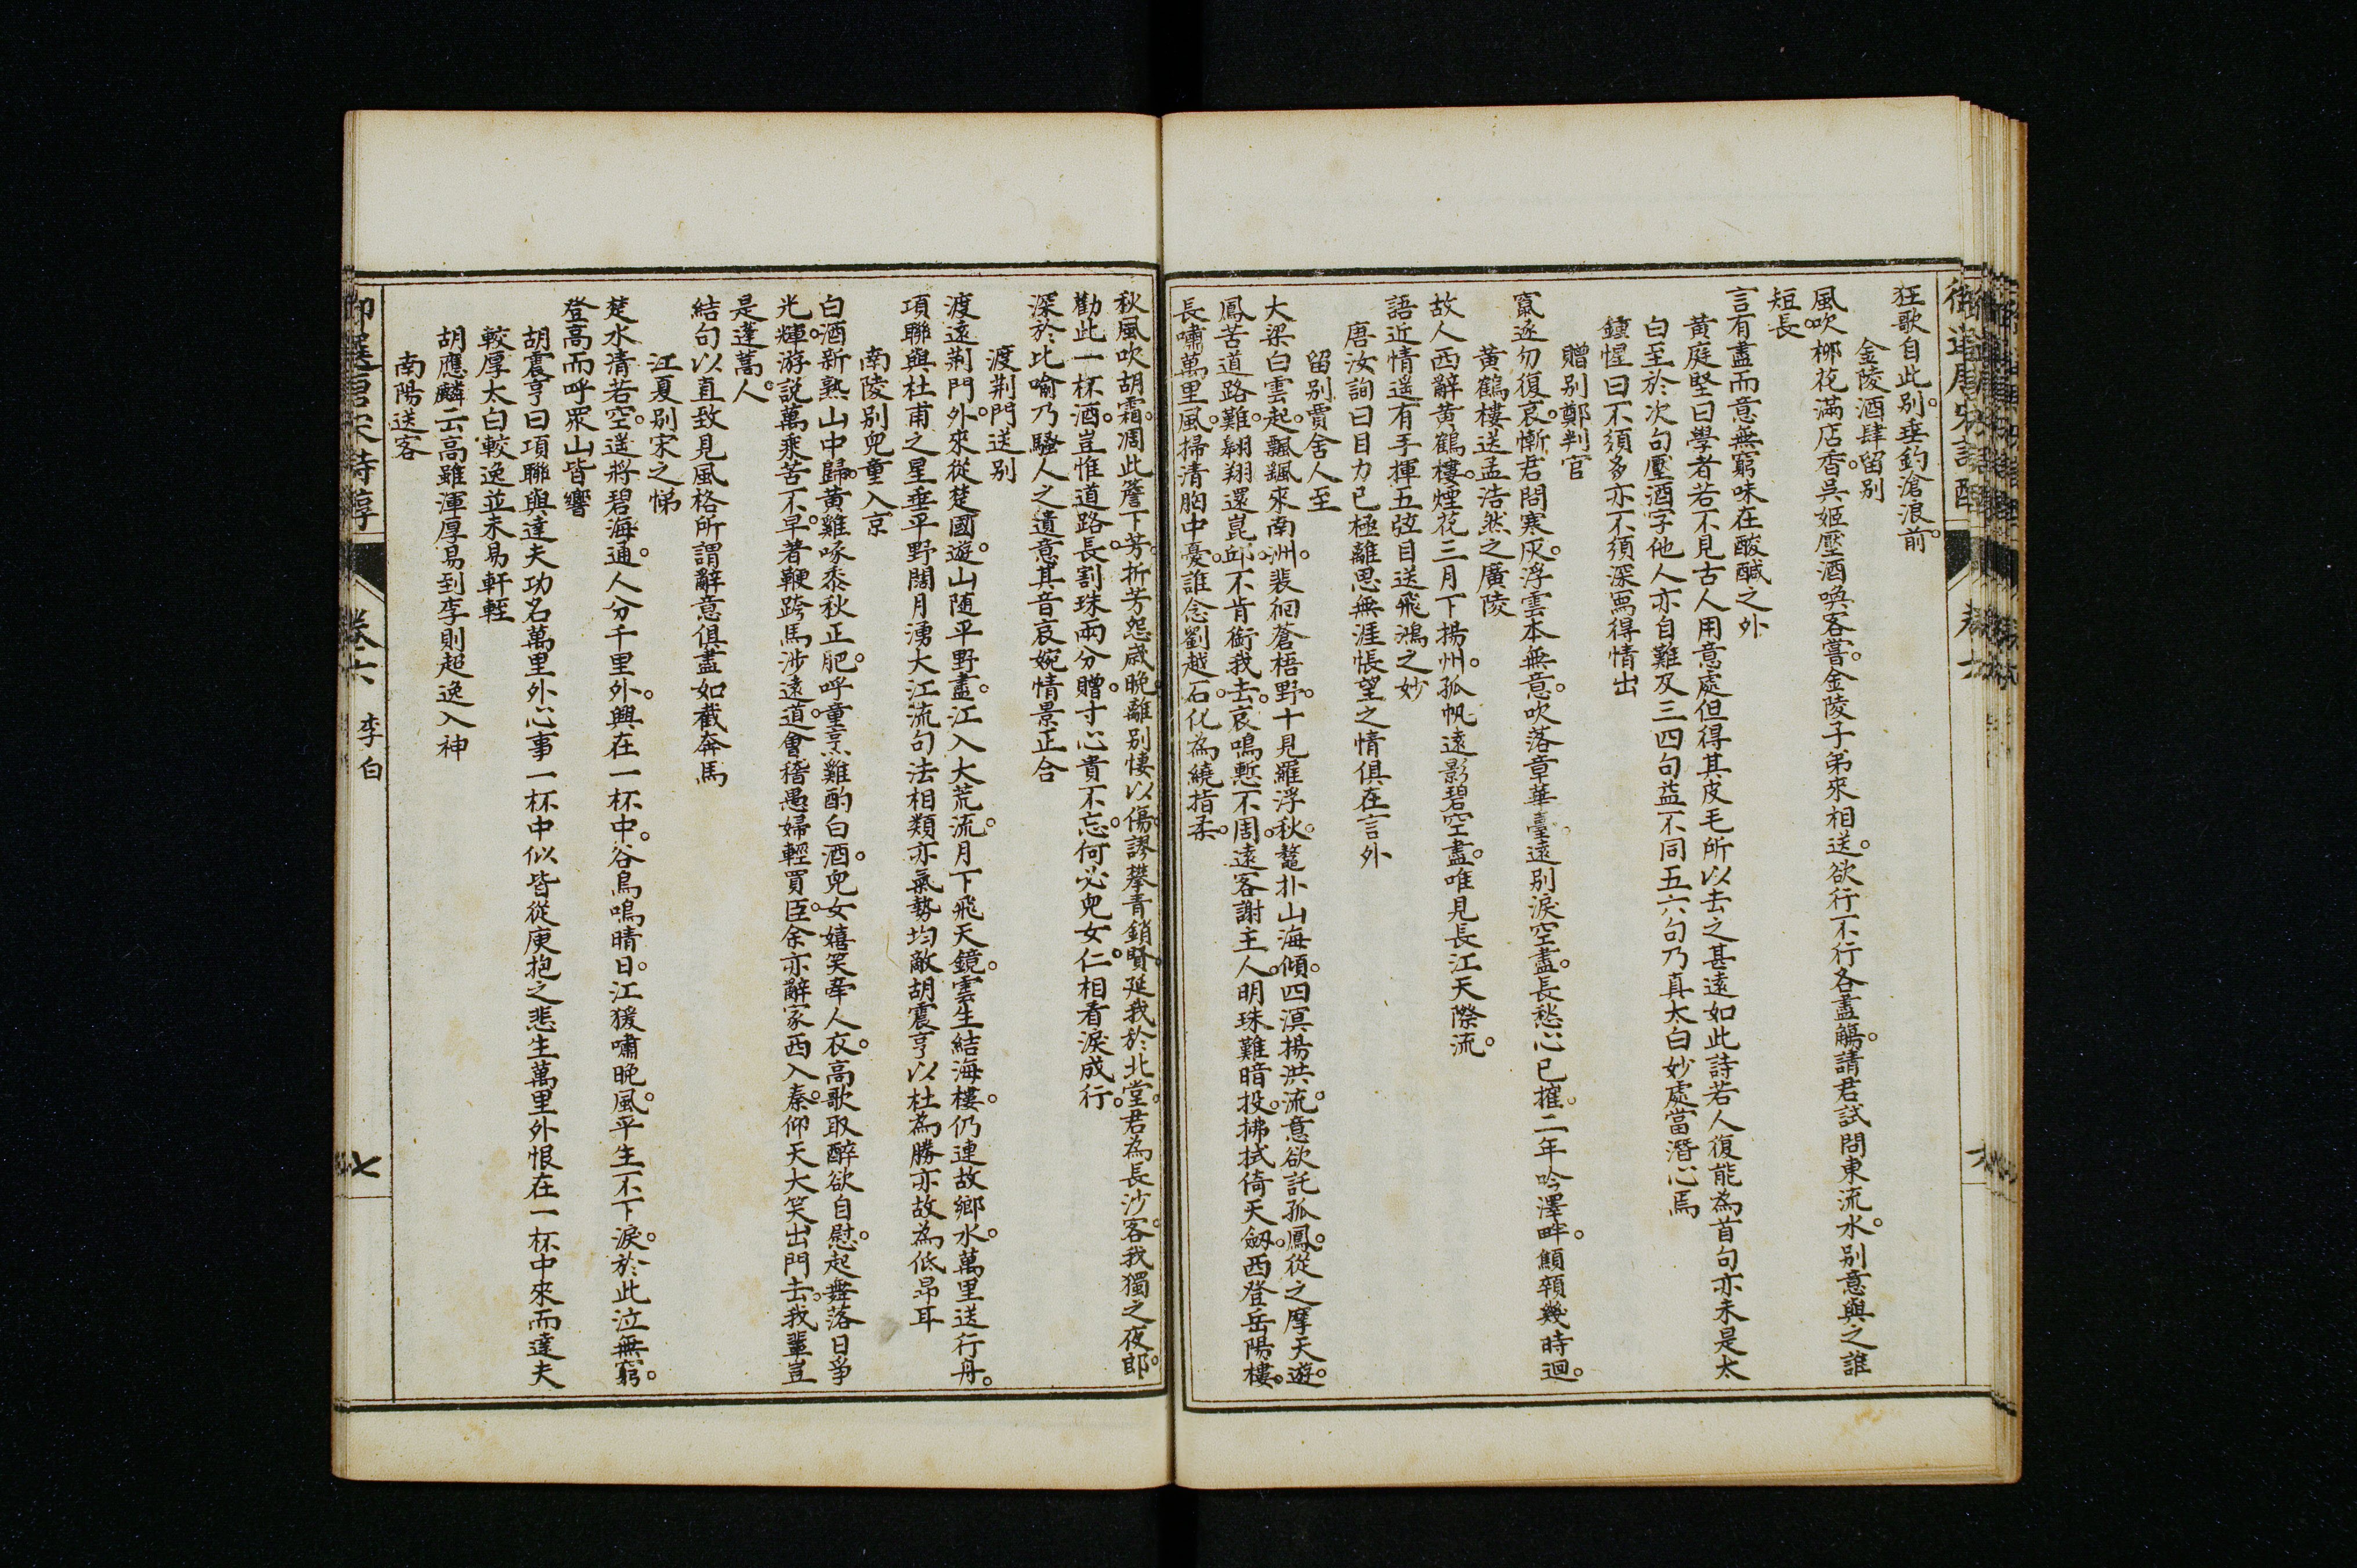 狂歌自此别。垂釣滄浪前。
金陵酒肆留别
風吹柳花滿店香。吳姬壓酒喚客嘗。金陵子弟來相送。欲行不行各盡觴。請君試問東流水。别意與之誰
短長。
言有盡而意無窮味在酸醎之外
黄庭堅曰學者若不見古人用意處但得其皮毛所以去之甚遠如此詩若人復能為首句亦未是太
白至於次句壓酒字他人亦自難及三四句益不同五六句乃真太白妙處當潛心焉
鍾惺曰不須多亦不須深寫得情出
贈别鄭判官
竄逐勿復哀。慚君問寒灰。浮雲本無意。吹落章華臺。遠别淚空盡。長愁心已摧。二年吟澤畔。顦顇幾時迴。
黄鶴樓送孟浩然之廣陵
故人西辭黄鶴樓。煙花三月下揚州。孤帆遠影碧空盡。唯見長江天際流。
語近情遥有手揮五弦目送飛鴻之妙
唐汝詢曰目力已極離思無涯悵望之情俱在言外
留别賈舍人至
大梁白雲起。飄颻來南洲。裴徊蒼梧野。十見羅浮秋。鼇抃山海傾。四溟揚洪流。意欲託孤鳳。從之摩天遊。
鳳苦道路難。翱翔還崑邱。不肯銜我去。哀鳴慙不周。遠客謝主人。明珠難暗投。拂拭倚天劒。西登岳陽樓。
長嘯萬里風。掃清胸中憂。誰念劉越石。化為繞指柔。
秋風吹胡霜。凋此簷下芳。折芳怨歲晚。離别悽以傷。謬攀青鎖賢。延我於北堂。君為長沙客。我獨之夜郎。
勸此一杯酒。豈惟道路長。割珠兩分贈。寸心貴不忘。何必兒女仁。相看淚成行。
深於比喻乃騷人之遺意其音哀婉情景正合
渡荆門送别
渡遠荆門外。來從楚國遊。山随平野盡。江入大荒流。月下飛天鏡。雲生結海樓。仍連故鄉水。萬里送行舟。
項聯與杜甫之星垂平野闊月湧大江流句法相類亦氣勢均敵胡震亨以杜為勝亦故為低昂耳
南陵别兒童入京
白酒新熟山中歸。黄雞啄黍秋正肥。呼童烹雞酌白酒。兒女嬉笑牽人衣。高歌取醉欲自慰。起舞落日爭
光輝。游説萬乘苦不早。著鞭跨馬涉遠道。會稽愚婦輕買臣。余亦辭家西入秦。仰天大笑出門去。我輩豈
是蓬蒿人。
結句以直致見風格所謂辭意俱盡如截奔馬
江夏别宋之悌
楚水清若空。遥將碧海通。人分千里外。興在一杯中。谷鳥鳴晴日。江猨嘯晚風。平生不下淚。於此泣無窮。
登高而呼眾山皆響
胡震亨曰項聯與達夫功名萬里外心事一杯中似皆從庾抱之悲生萬里外恨在一杯中來而達夫
較厚太白較逸並未易軒輊
胡應麟云高雖渾厚易到李則超逸入神
南陽送客
御選唐宋詩醇
卷六
李白
七